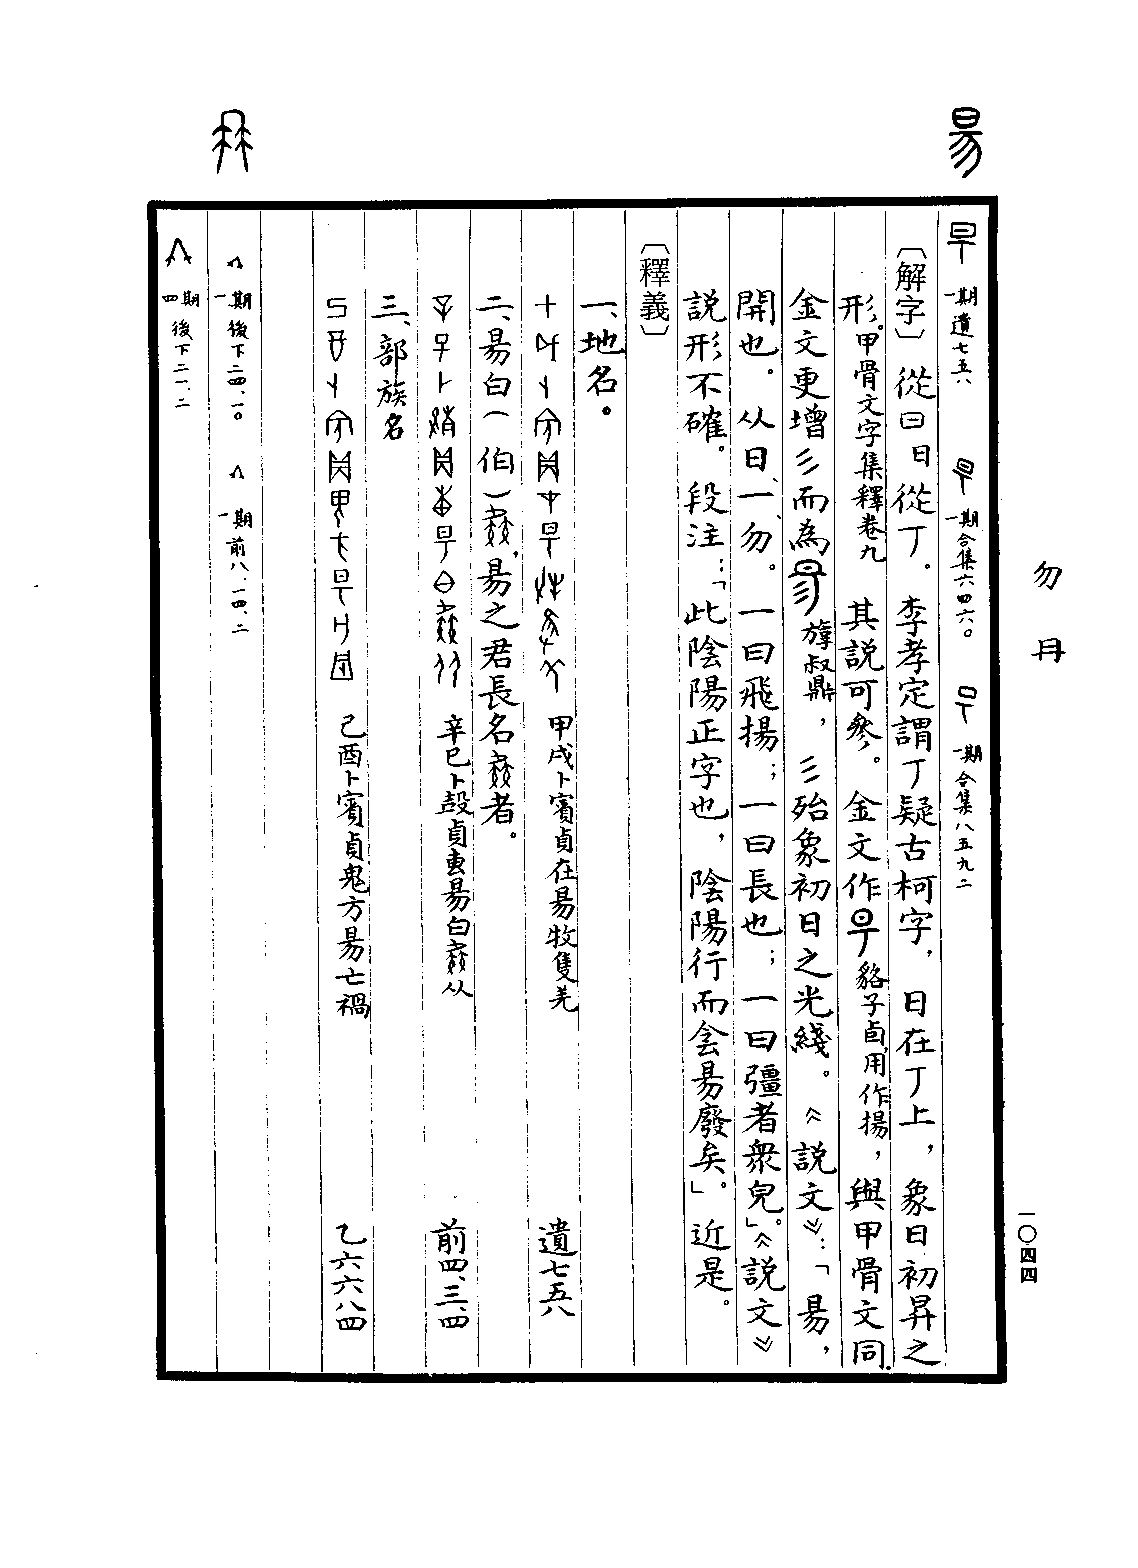 昜
一期遺七五八
一期合集六四六〇
一期合集八五九二
〔解字〕從日從丁。李孝定謂丁疑古柯字，日在丁上，象日初昇之
形。甲骨文字集釋卷九 其說可參。金文作 貉子卣，用作揚，與甲骨文同，
金文更增彡而為 旗叔鼎，彡殆象初日之光綫。《說文》：「昜，
開也。从日、一、勿。一曰飛揚；一曰長也；一曰彊者衆皃。」《說文》
說形不確。段注：「此陰陽正字也，陰陽行而侌昜廢矣。」近是。
〔釋義〕
一、地名。
甲戌卜賓貞在昜牧隻羌 遺七五八
二、昜白（伯），昜之君長名者。
辛巳卜㱿貞叀昜白从 前四、三、四
三、部族名
己酉卜賓貞鬼方昜亡禍 乙六六八四
一期後下二四、一〇
一期前八、一四、二
四期後下二一、二
勿 冄
一〇四四